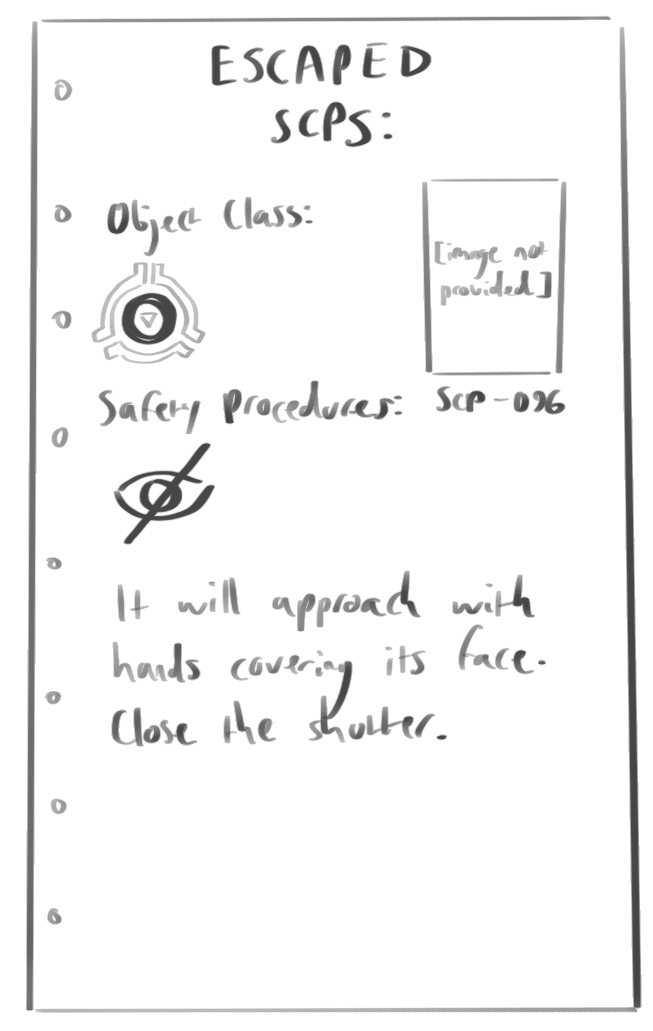 ESCAPED
SCPS:
Object Class:
[image not
provided]
Safety Procedures:
SCP-096
It will approach with
hands covering its face.
Close the shutter.